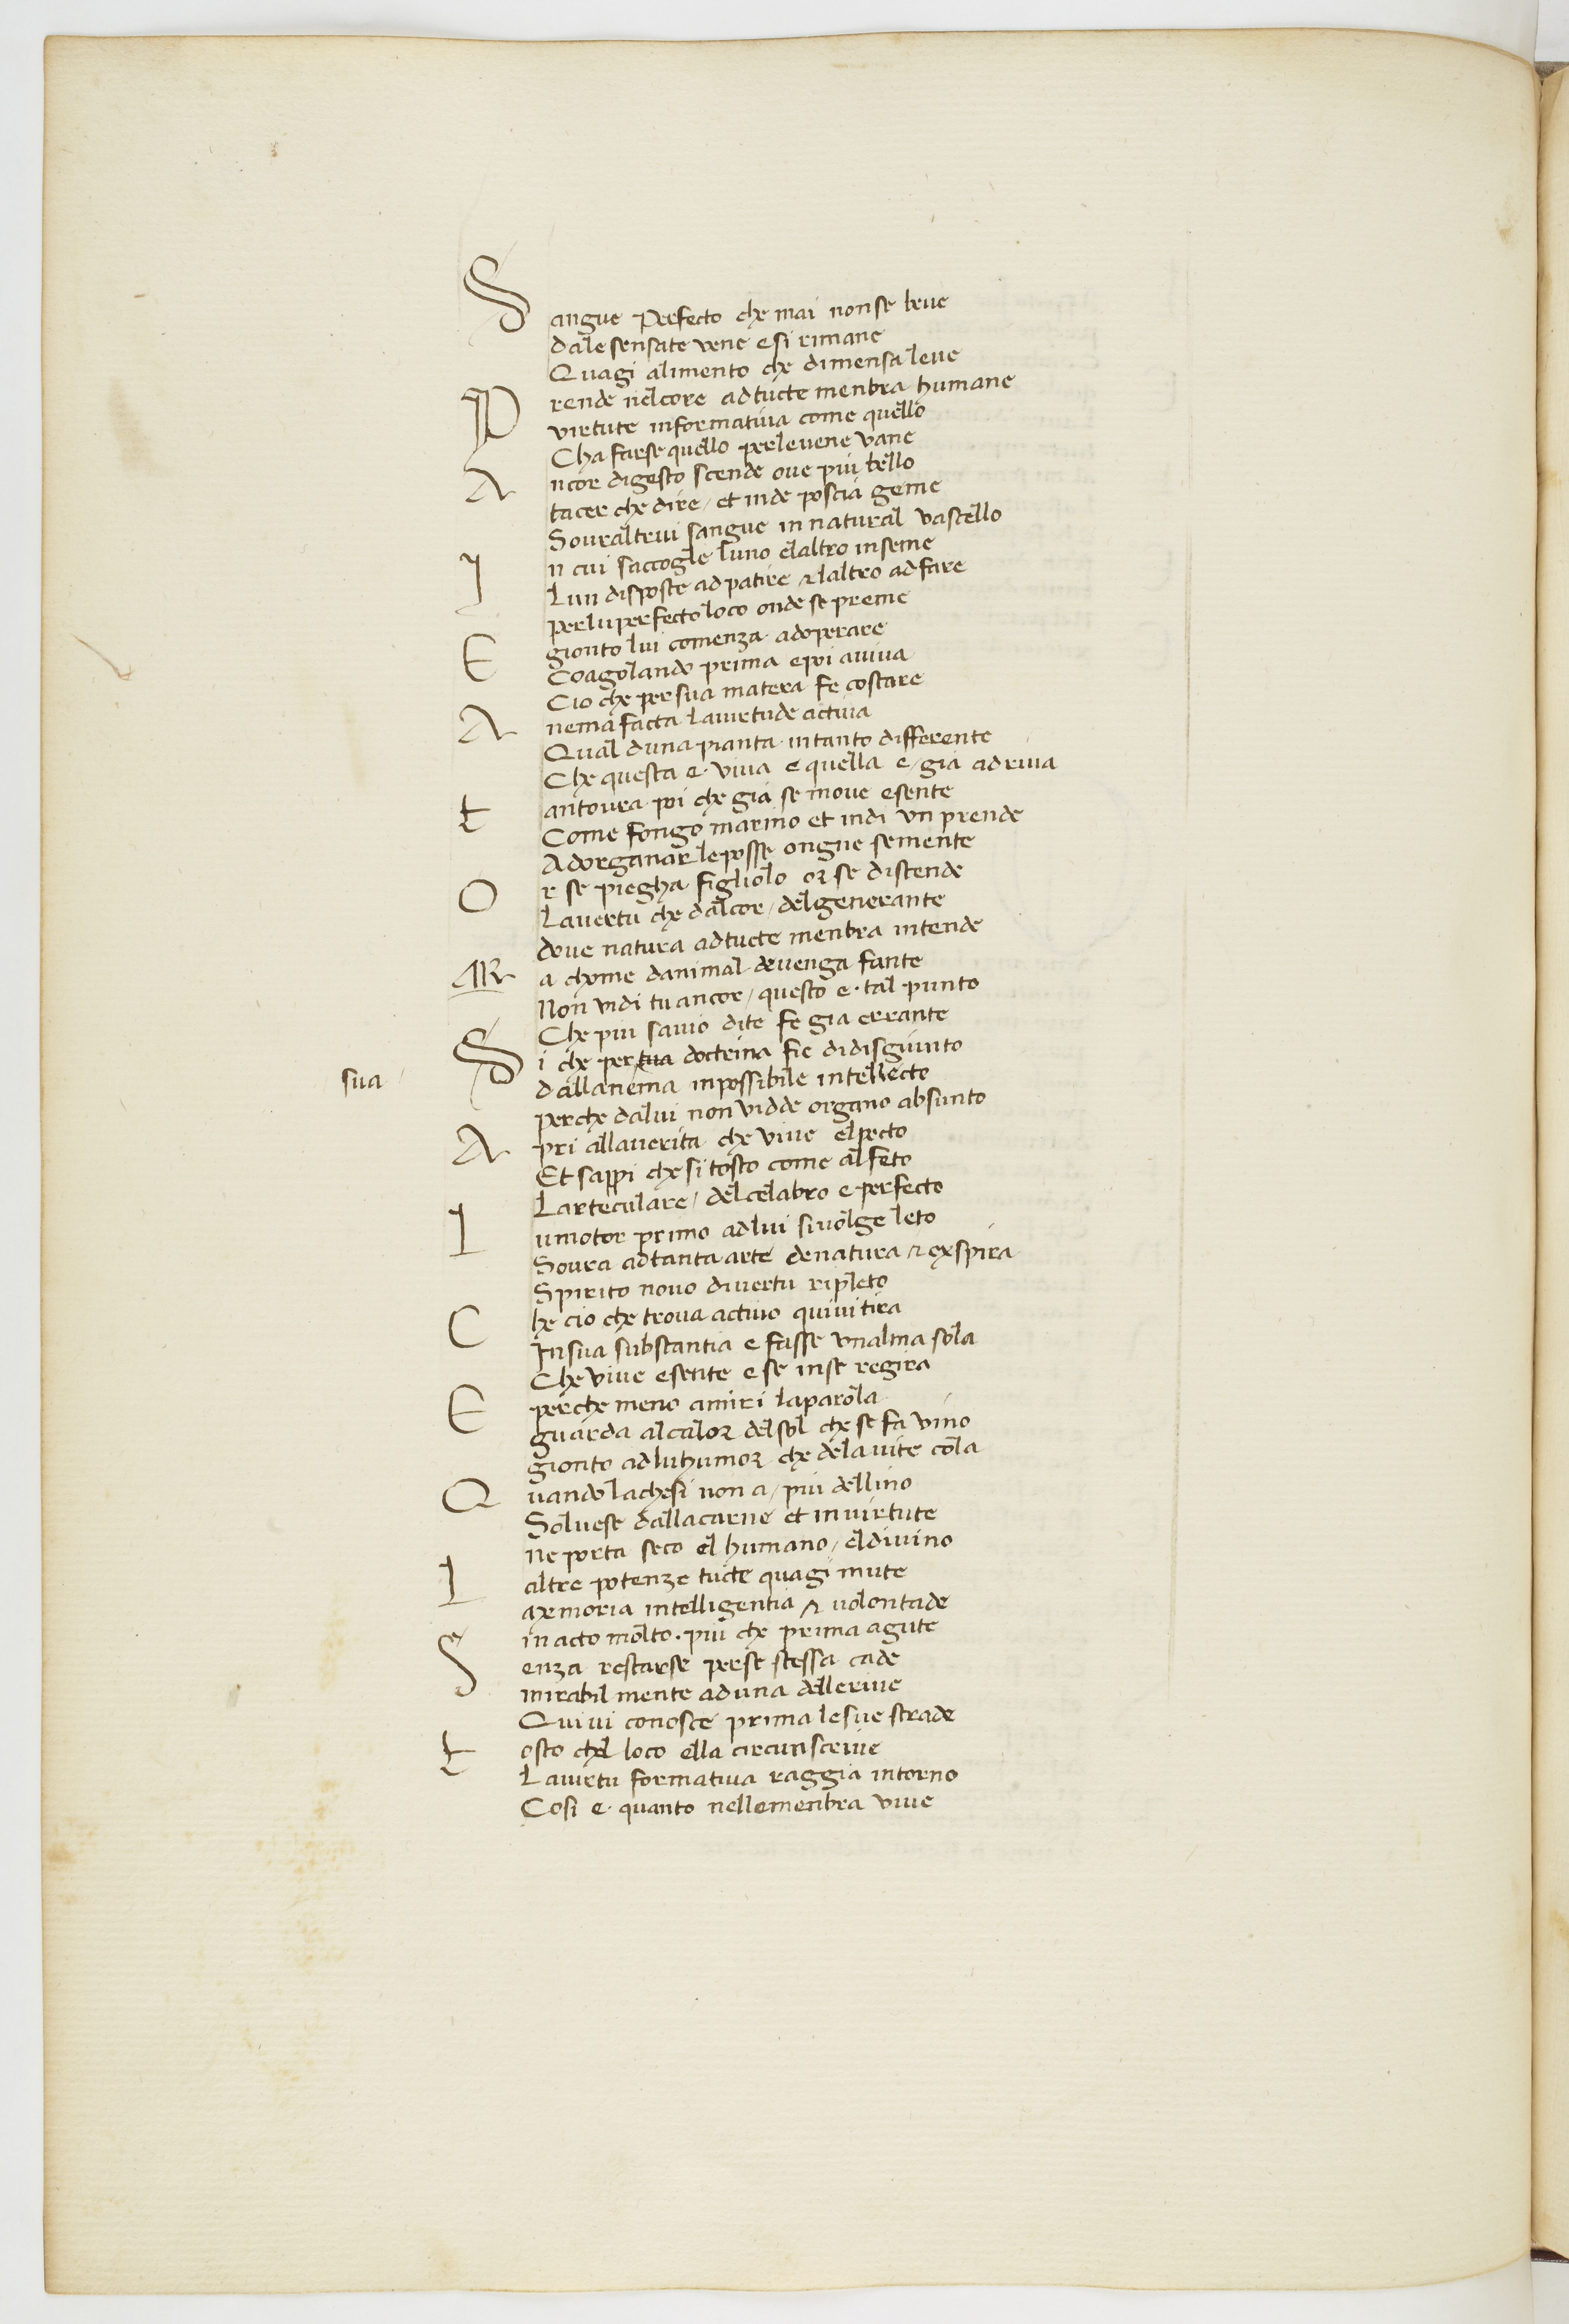 Sangue Perfecto che mai non se beve
dale sensate vene e si rimane
Quagi alimento che di mensa leve
Prende nel core ad tucte menbra humane
virtute informativa come quello
Cha farse quello per le vene vane
Ancor digesto scende ove piu bello
tacer che dire / et inde poscia geme
Sour altrui sangue in natural vascello
In cui saccogle luno e laltro inseme
Lun disposte ad patire et laltro ad fare
per lu perfecto loco onde se preme
E gionto lui comenza adoperare
Coagolando prima e poi aviva
Cio che per sua matera fe costare
Anema facta la virtude activa
Qual duna pianta in tanto differente
Che questa e· viva e quella e / gia ad riva
tantovra poi che gia se move e sente
Come fongo marino et indi vn prende
Ad organar le posse ongne semente
Or se piegha figliolo or se distende
La vertu che dal cor / del generante
dove natura ad tucte menbra intende
Ma chome danimal devenga fante
Non vidi tu ancor / questo e· tal punto
Che piu savio dite fe gia errante
Si che per tua doctrina fie di disgiunto
sua
dallanema inpossibile intellecto
perche da lui non vidde organo absunto
Apri alla verita che vive el pecto
Et sappi che si tosto come al feto
Larteculare / del celabro e perfecto
Lu motor primo ad lui si volge leto
Soura ad tanta arte de natura et exspira
Spirito novo di vertu ripleto
Che cio che trova activo quivi tira
In sua substantia e fasse vnalma sola
Che vive e sente e se in se regira
E perche meno amiri la parola
guarda al calor del sol che se fa vino
gionto ad lu humor che de la vite cola
Quando lachesi non a / piu del lino
Solvese dalla carne et in virtute
Ne porta seco el humano / el divino
Laltre potenze tucte quagi mute
memoria intelligentia et volontade
in acto molto· piu che prima agute
Senza restarse per se stessa cade
mirabil mente ad una delle rive
Quivi conosce prima le sue strade
tosto chel loco ella circunscrive
La virtu formativa raggia intorno
Cosi e· quanto nelle menbra vive